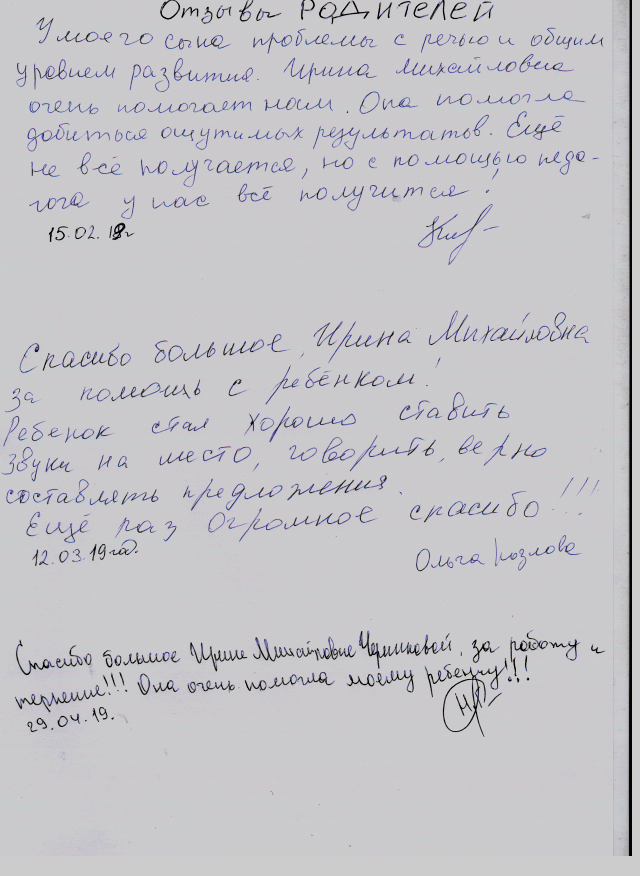 Отзывы РОДИТЕЛЕЙ
У моего сына проблемы с речью и общим
уровнем развития. Ирина Михайловна
очень помогает нам. Она помогла
добиться ощутимых результатов. Ещё
не всё получается, но с помощью педа-
гога у нас всё получится!
15.02.19г
Спасибо большое, Ирина Михайловна
за помощь с ребёнком!
Ребенок стал хорошо ставить
звуки на место, говорить, верно
составлять предложения.
Ещё раз огромное спасибо!!!
12.03.19год.
Ольга Козлова
Спасибо большое Ирине Михайловне Черниковой, за работу и
терпение!!! Она очень помогла моему ребенку!!!
29.04.19.